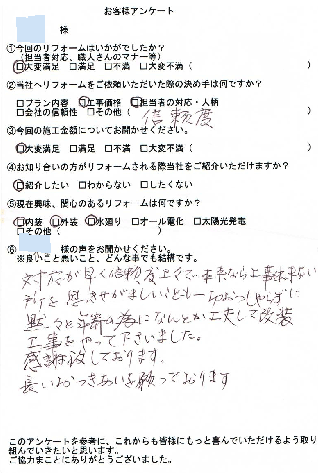 お客様アンケート
様
①今回のリフォームはいかがでしたか？
(担当者対応、職人さんのマナー等)
□大変満足 □満足 □不満 □大変不満( )
②当社へリフォームをご依頼いただいた際の決め手は何ですか？
□プラン内容 □工事価格 □担当者の対応・人柄
□会社の信頼性 □その他( 信頼度 )
③今回の施工金額についてお聞かせください。
□大変満足 □満足 □不満 □大変不満
④お知り合いの方がリフォームされる際当社をご紹介いただけますか？
□紹介したい □わからない □したくない
⑤現在興味、関心のあるリフォームは何ですか？
□内装 □外装 □水廻り □オール電化 □太陽光発電
□その他( )
⑥ 様の声をお聞かせください。
※良いこと思いこと、どんな事でも結構です。
対応が早く信頼度
工事
黙々と 為になんとか工夫して改装
工事をやって下さいました。
感謝致しております。
長いおつきあいを願っております
このアンケートを参考に、これからも皆様にもっと喜んでいただけるよう取り
組んでいきたいと思います。
ご協力まことにありがとうございました。